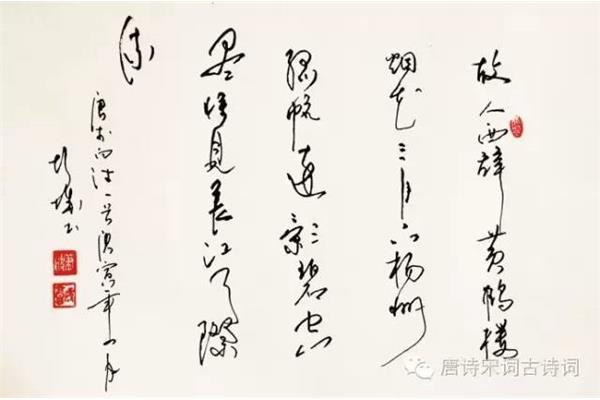 故人西辞黄鹤楼
烟花三月下杨州
孤帆远影碧空
尽惟見長江天際
流
唐李白诗一首庚寅年一月
书
唐诗宋词古诗词